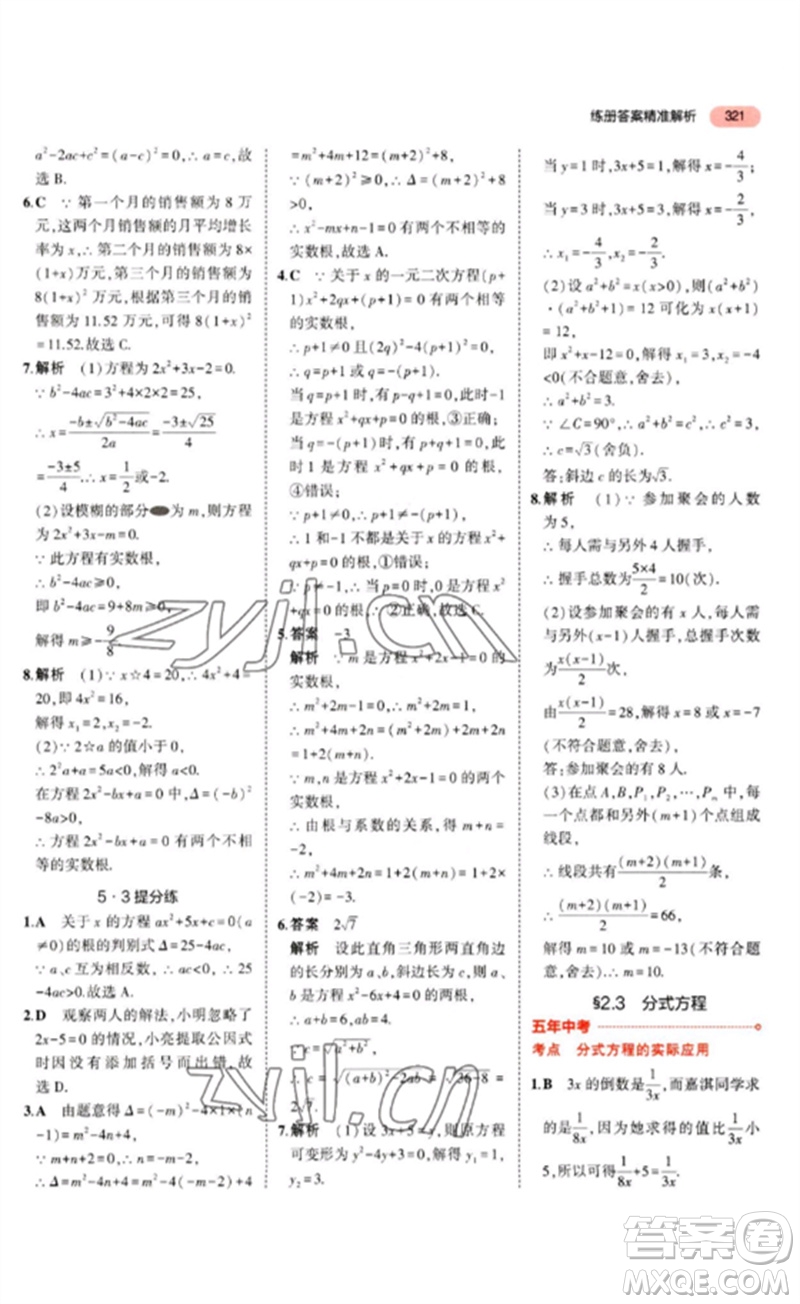 练册答案精准解析 321
a²-2ac+c²=(a-c)²=0,∴a=c,故
选 B.
6.C ∵第一个月的销售额为 8 万
元,这两个月销售额的月平均增长
率为 x,∴第二个月的销售额为 8×
(1+x)万元,第三个月的销售额为
8(1+x)²万元,根据第三个月的销
售额为 11.52 万元,可得 8(1+x)²
=11.52.故选 C.
7.解析 (1)方程为 2x²+3x-2=0.
∵b²-4ac=3²+4×2×2=25,
∴x=(-b±√(b²-4ac))/2a=(-3±√25)/4
=(-3±5)/4.∴x=1/2或-2.
(2)设模糊的部分 为 m,则方程
为 2x²+3x-m=0.
∵此方程有实数根,
∴b²-4ac≥0,
即 b²-4ac=9+8m≥0,
解得 m≥-9/8.
8.解析 (1)∵x☆4=20,∴4x²+4=
20,即 4x²=16,
解得 x₁=2,x₂=-2.
(2)∵2☆a 的值小于 0,
∴2²a+a=5a<0,∴a<0.
在方程 2x²-bx+a=0 中,Δ=(-b)²
-8a>0,
∴方程 2x²-bx+a=0 有两个不相
等的实数根.
5·3提分练
1.A 关于 x 的方程 ax²+5x+c=0(a
≠0)的根的判别式 Δ=25-4ac,
∵a、c互为相反数,∴ac<0,∴25-
4ac>25.∴有两个不相等的实数
根.故选 A.
2.D 观察两人的解法,小明忽略了
2x-5=0 的情况,小亮提取公因式
时因没有进行变号而出错.故
选 D.
3.A 由题意得 Δ=(-m)²-4×1×(n
-1)=m²-4n+4,
∵m+n=0,∴n=-m,
∴Δ=m²-4n+4=m²-4(-m)+4
=m²+4m+12=(m+2)²+8,
∵(m+2)²≥0,∴Δ=(m+2)²+8
>0,
∴x²-mx+n-1=0 有两个不相等的
实数根,故选 A.
4.C ∵关于 x 的一元二次方程(p+
1)x²+2qx+(p+1)=0 有两个相等
的实数根,
∴p+1≠0且(2q)²-4(p+1)²=0,
∴q=p+1 或 q=-(p+1).
当 q=p+1 时,有p-q+1=0,此时-1
是方程 x²+qx+p=0 的根,③正确;
当 q=-(p+1)时,有p+q+1=0,此
时 1 是方程 x²+qx+p=0 的根,
④错误;
∵p+1≠0,∴p+1≠-(p+1),
∴1 和-1 不都是关于 x 的方程 x²+
qx+p=0 的根,①错误;
∵p≠-1,∴x=0
不是方程 x²+qx
②正确,故选 C.
5.答案 -3
解析 ∵m 是方程 x²+2x-1=0 的
实数根,
∴m²+2m-1=0,∴m²+2m=1.
∴m²+4m+2n=(m²+2m)+2m+2n
=1+2(m+n).
∵m,n 是方程 x²+2x-1=0 的两个
实数根,
∴由根与系数的关系,得 m+n=
-2,
∴m²+4m+2n=1+2×(-2)=1-4
=-3.
6.答案 2√7
解析 设此直角三角形两直角边
的长分别为 a、b,斜边长为 c,
∵a、b 是方程 x²-6x+4=0 的两个
根,
∴a+b=6,ab=4,
∴c=√((a+b)²-2ab)=√(36-8)=
2√7.
7.解析 (1)设 3x+5=y,则原方程
可变形为 y²-4y+3=0,解得 y₁=1,
y₂=3.
当 y=1 时,3x+5=1,解得 x=-4/3;
当 y=3 时,3x+5=3,解得 x=-2/3,
∴x₁=-4/3,x₂=-2/3.
(2)设 a²+b²=x(x>0),则(a²+b²)
·(a²+b²+1)=12 可化为 x(x+1)
=12,
即 x²+x-12=0,解得 x₁=3,x₂=-4
<0(不合题意,舍去),
∴a²+b²=3.
∵∠C=90°,∴a²+b²=c²=3,
∴c=√3(舍负).
答:斜边 c 的长为√3.
8.解析 (1)∵参加聚会的人数
为 5,
∴每人需与另外 4 人握手,
∴握手总数为(5×4)/2=10(次).
(2)设参加聚会的有 x 人,则每人
需与另外(x-1)人握手,握手总数
为x(x-1)/2次,
由x(x-1)/2=28,解得 x=8 或 x=-7
(不符合题意,舍去).
答:参加聚会的有 8 人.
(3)在点 A,B,P₁,P₂,…,Pₘ 中,每
一个点都和另外(m+1)个点组成
线段,
∴线段共有(m+2)(m+1)/2条,
∴(m+2)(m+1)/2=66,
解得 m=10 或 m=-13(不符合题
意,舍去),∴m=10.
§2.3 分式方程
五年中考
考点 分式方程的实际应用
1.B 3x 的倒数是1/3x,而嘉淇同学求
的是1/8x,因为她求得的值比1/3x小
5,所以可得1/8x+5=1/3x.
zyjl.cn
zyjl.cn
答案卷
MXQE.COM